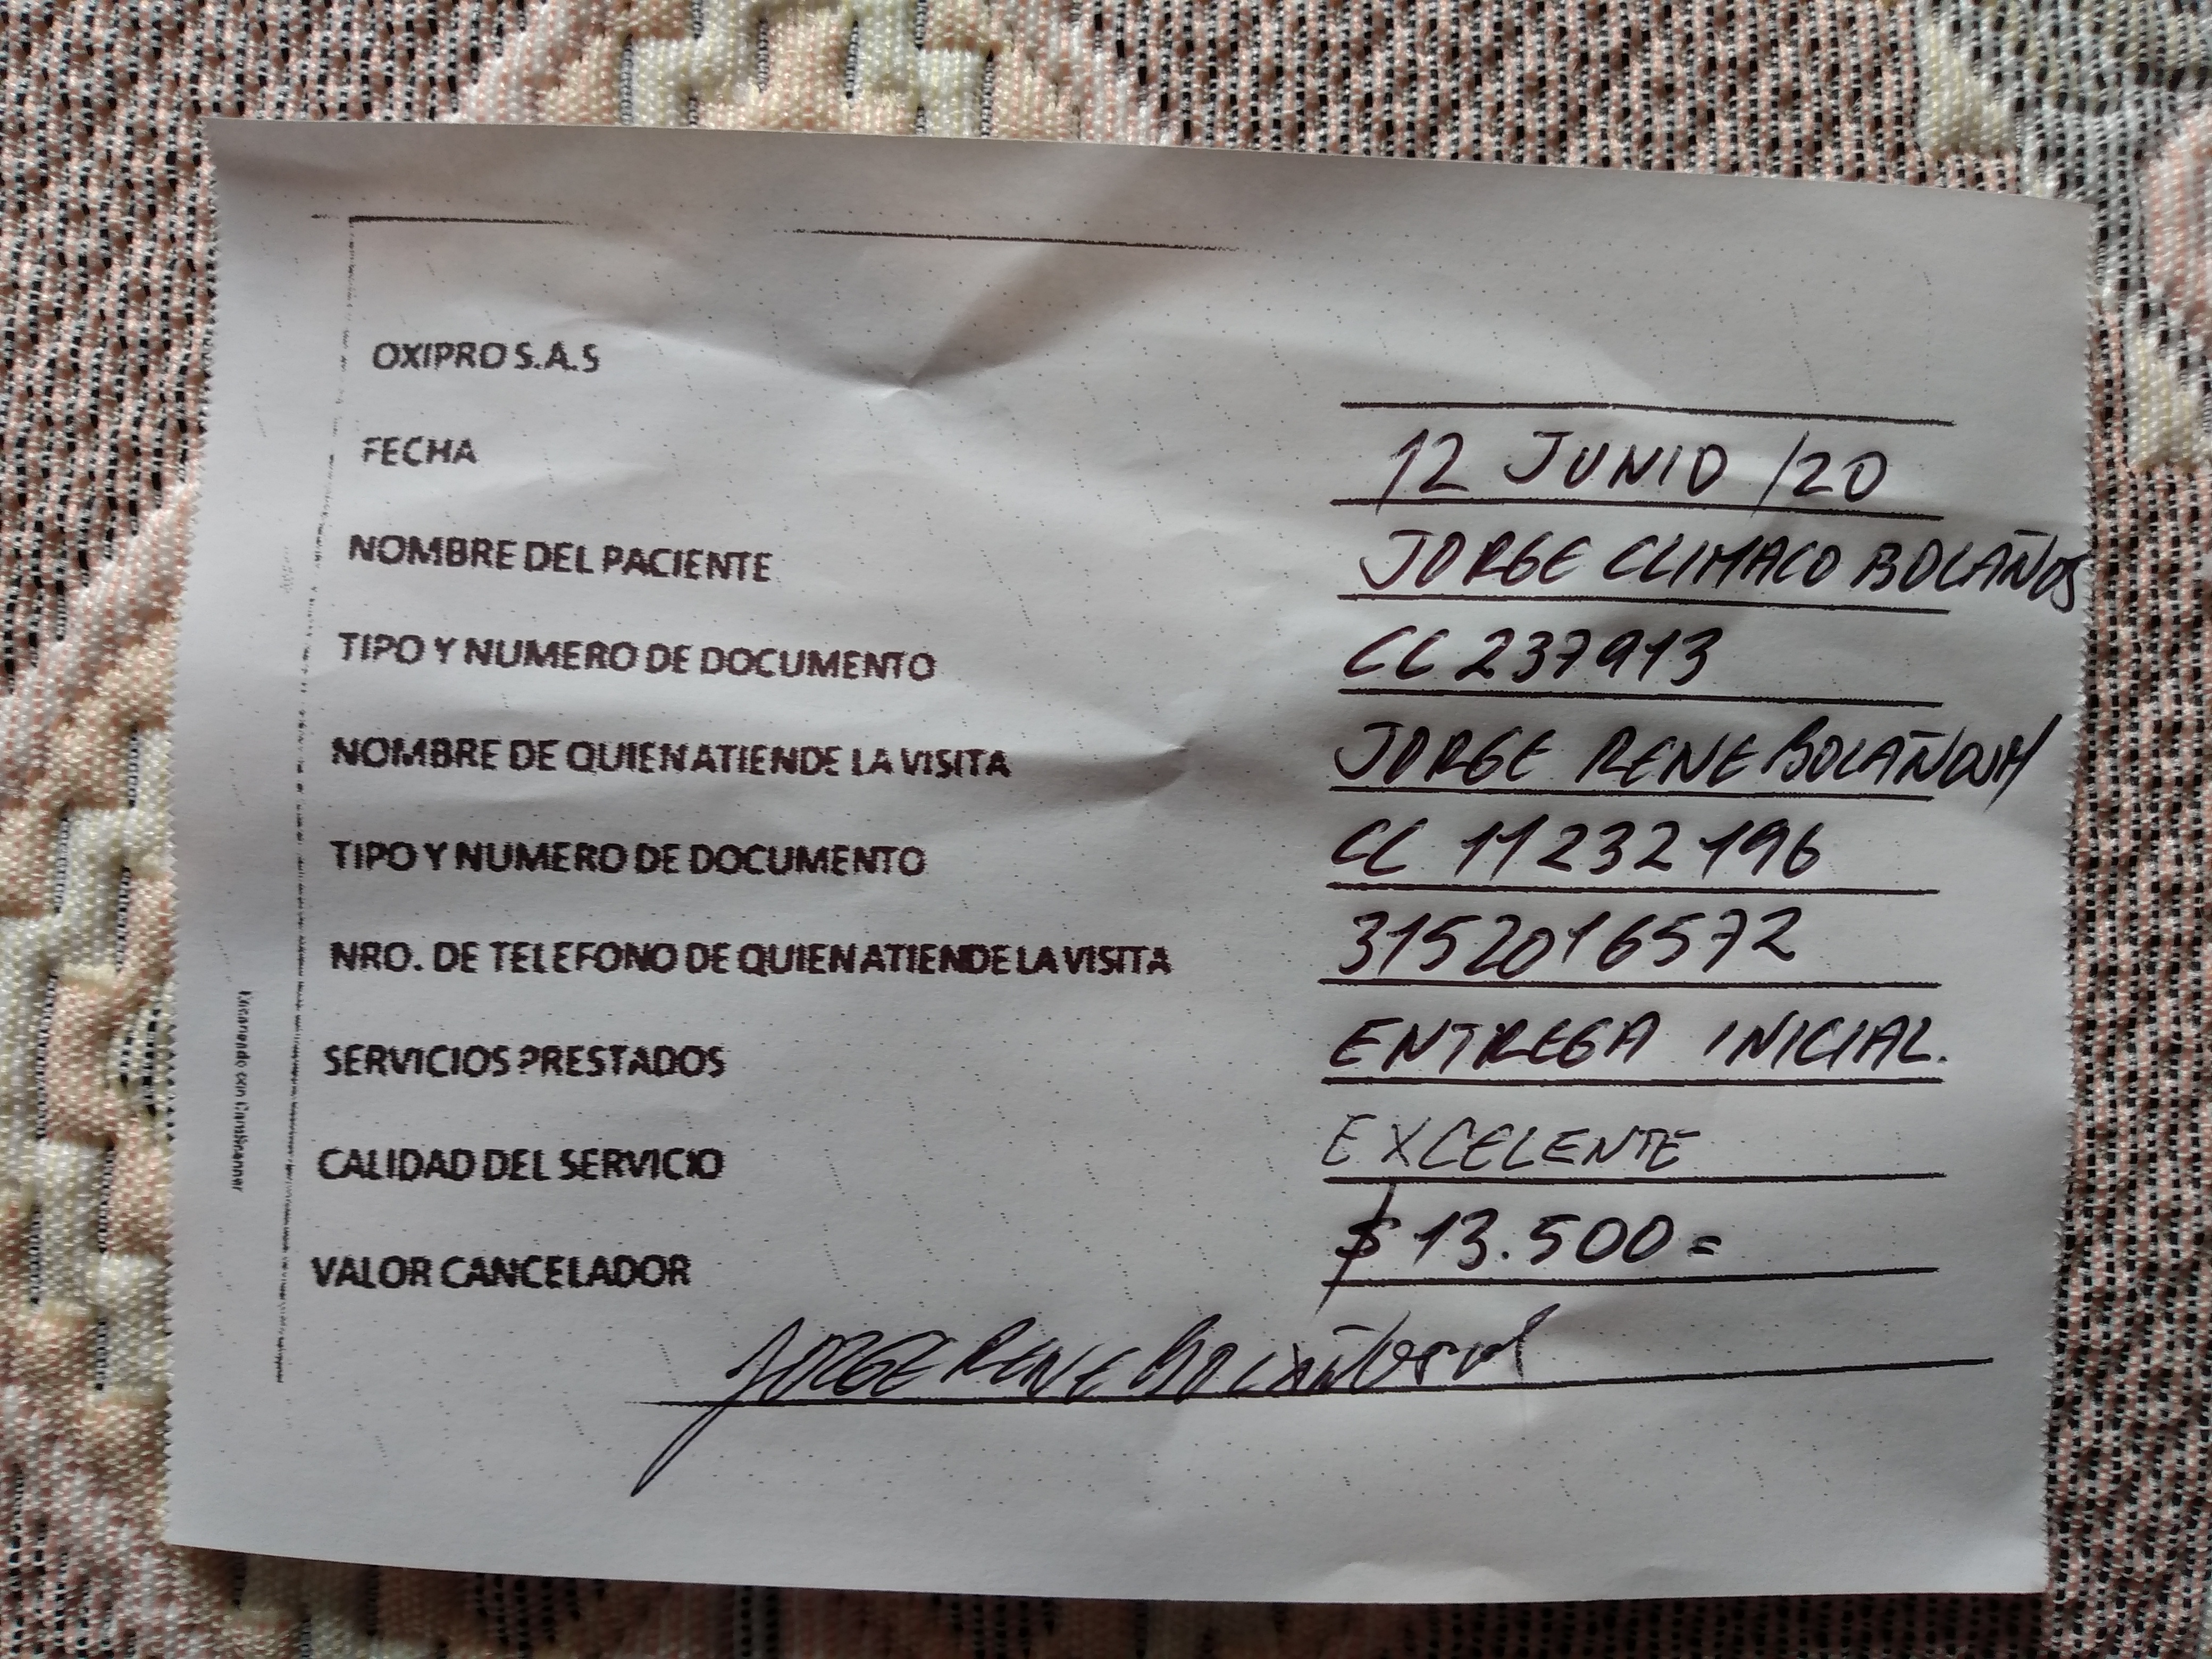 OXIPRO S.A.S
FECHA 12 JUNIO /20
NOMBRE DEL PACIENTE JORGE CLIMACO BOLAÑOS
TIPO Y NUMERO DE DOCUMENTO CC 237913
NOMBRE DE QUIEN ATIENDE LA VISITA JORGE RENE BOLAÑOS M
TIPO Y NUMERO DE DOCUMENTO CC 11232196
NRO. DE TELEFONO DE QUIEN ATIENDE LA VISITA 3152016572
SERVICIOS PRESTADOS ENTREGA INICIAL.
CALIDAD DEL SERVICIO EXCELENTE
VALOR CANCELADOR $ 13.500=
JORGE RENE BOLAÑOS M
Escaneado con CamScanner